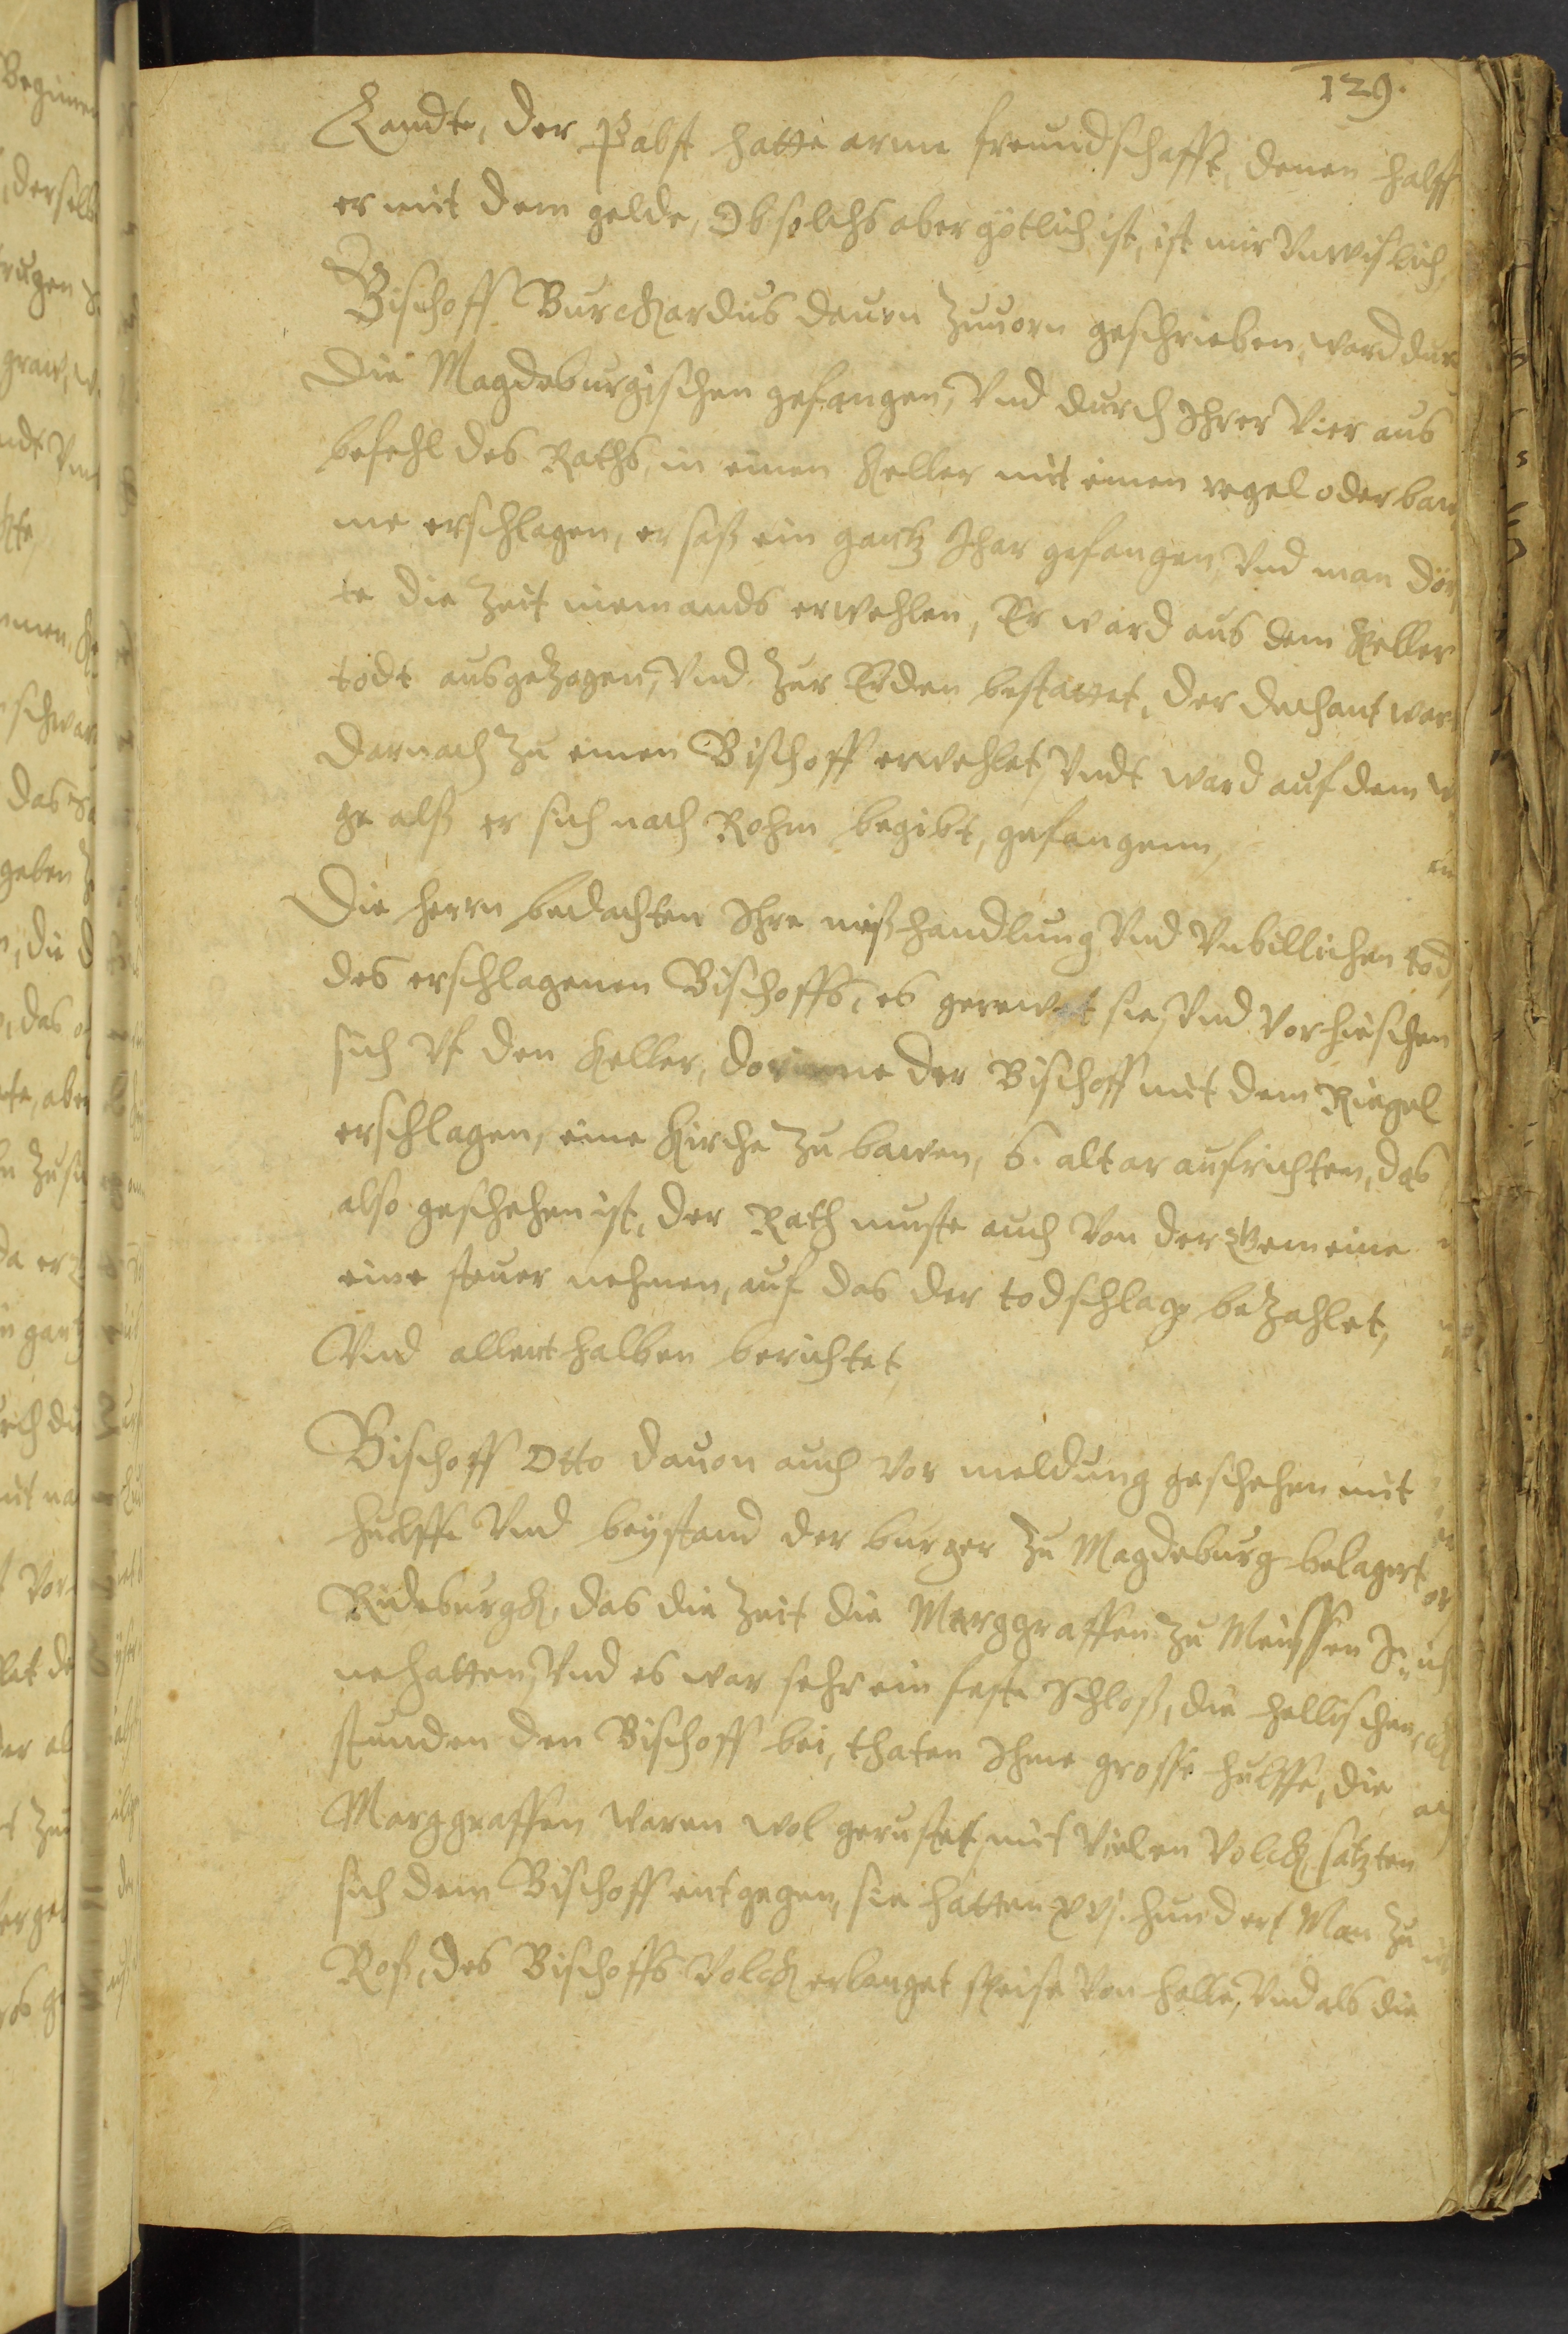 129.
Landte, der Pabst hatte arme freundschafft, denen halff
er mit dem gelde, Ob solchs aber götlich ist, ist mir Vnwislich,
Bischoff Burckhardus dauon Zuuorn geschrieben, ward dur
Die Magdeburgischen gefangen, Vnd durch Ihrer Vier aus
befehl des Raths, in einen Keller mit einen regel oder bau
me erschlagen, er saß ein gantz Ihar gefangen, Vnd man dör
te die Zeit niemands erwehlen, Er ward aus dem Keller
todt ausgetzogen, Vnd Zur Erden bestattet, der dechant war
darnach Zu einen Bischoff erwehlet, Vndt ward auf dem w
ge alß er sich nach Rohm begibt, gefangenn,
Die herrn bedachten Ihre mißhandlung Vnd Vnbillichen tod
des erschlagenen Bischoffs, es gerewet sie, Vnd Vorhieschen
sich Vf den Keller, dorinne der Bischoff mit dem Riegel
erschlagen, eine Kirche Zu bawen, 6. altar aufrichten, das
also geschehen ist, der Rath muste auch Von der Gemeine
eine steuer nehmen, auf das der todschlag betzahlet,
Vnd allenthalben berichtet
Bischoff Otto dauon auch Vor meldung geschehen mit
hulffe Vnd beystand der burger Zu Magdeburg belagert
Rideburgk, das die Zeit die Marggraffen Zu Meissen In
nehatten, Vnd es war sehr ein feste Schloß, die hellischen
stunden den Bischoff bei, thaten Ihme grosse hulffe, die
Marggraffen waren wol gerustet, mit Vielen Volck satzten
sich dem Bischoff entgegen, sie hatten xvj. hundert Man Zu
Roß, des Bischoffs Volck erlanget speise Von halle, Vnd als die